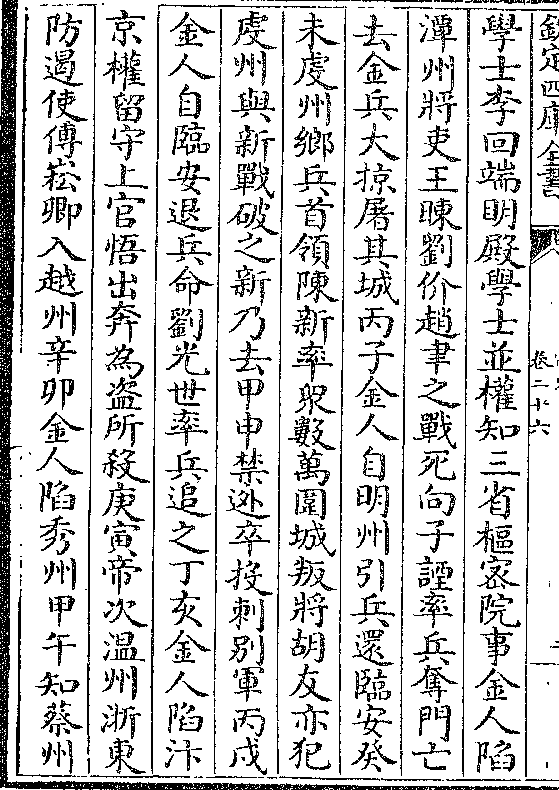 欽定四庫全書
卷二十六
學士李回端明殿學士並權知三省樞密院事金人陷
潭州將吏王暕劉价趙聿之戰死向子諲率兵奪門亡
去金兵大掠屠其城丙子金人自明州引兵還臨安癸
未虔州鄉兵首領陳新率眾數萬圍城叛將胡友亦犯
虔州與新戰破之新乃去甲申禁逃卒投刺别軍丙戌
金人自臨安退兵命劉光世率兵追之丁亥金人陷汴
京權留守上官悟出奔為盗所殺庚寅帝次温州浙東
防遏使傅崧卿入越州辛卯金人陷秀州甲午知蔡州